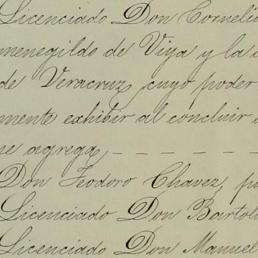 Licenciado Don Corneli
menegildo de Viya y la
de Veracruz, cuyo poder
mente exhibir al concluir
se agrega,
Don Teodoro Chavez, p
Licenciado Don Bartol
Licenciado Don Manuel